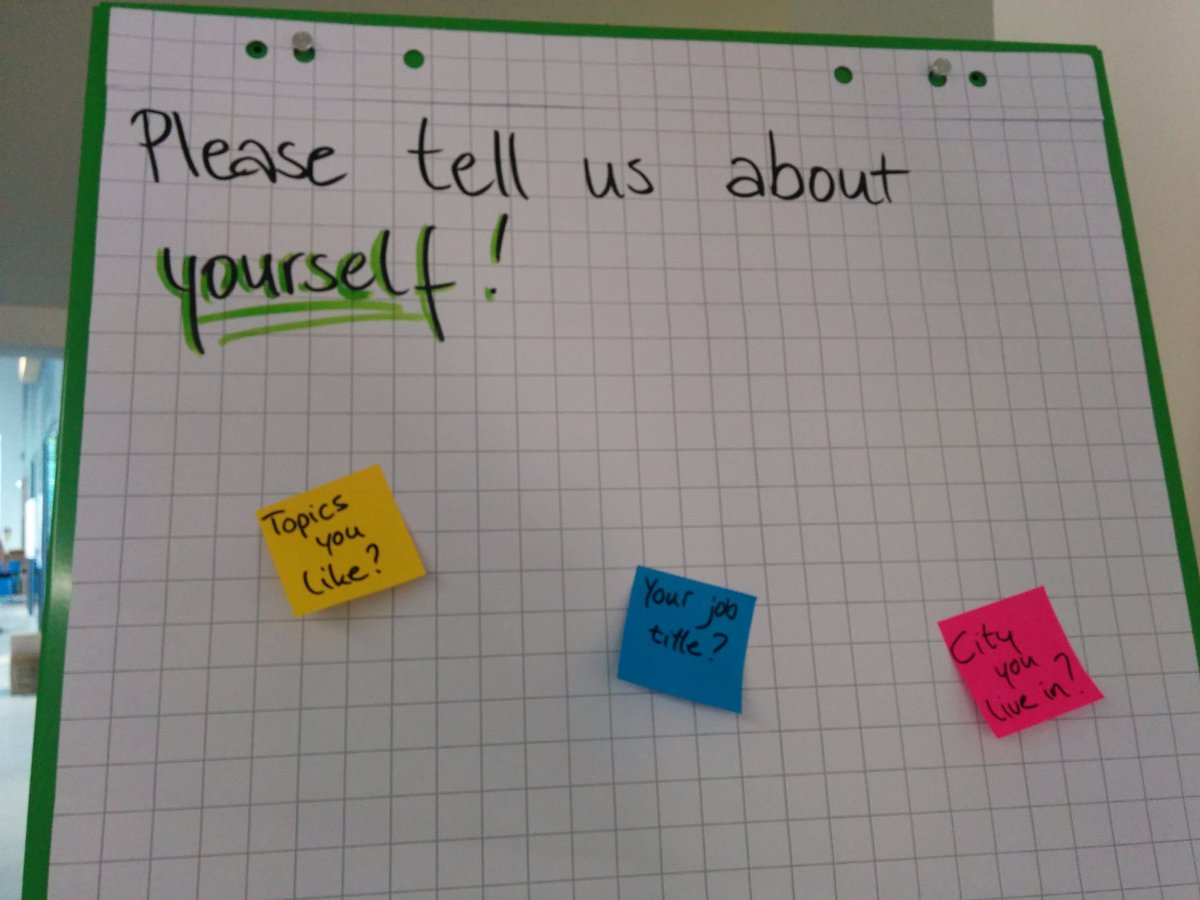 Please tell us about
yourself!
Topics
you
like?
Your job
title?
City
you
live in?